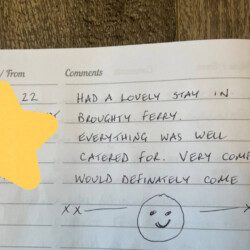 / From Comments
22 HAD A LOVELY STAY IN
BROUGHTY FERRY.
EVERYTHING WAS WELL
CATERED FOR. VERY
WOULD DEFINATELY COME
XX X